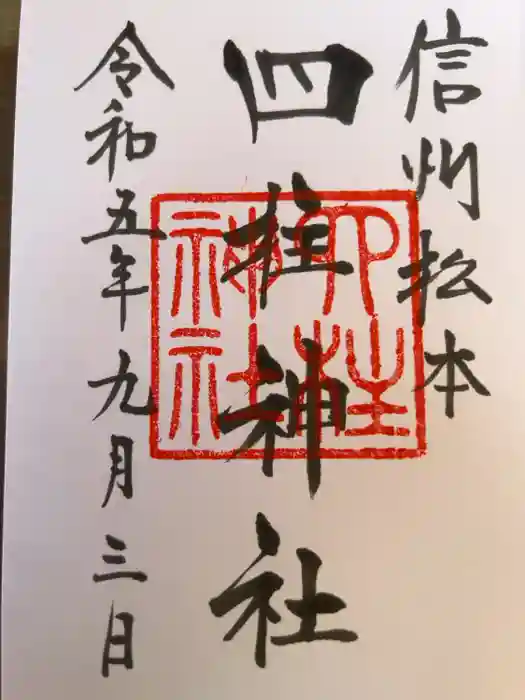 信州松本
四柱神社
四柱神社
令和五年九月三日